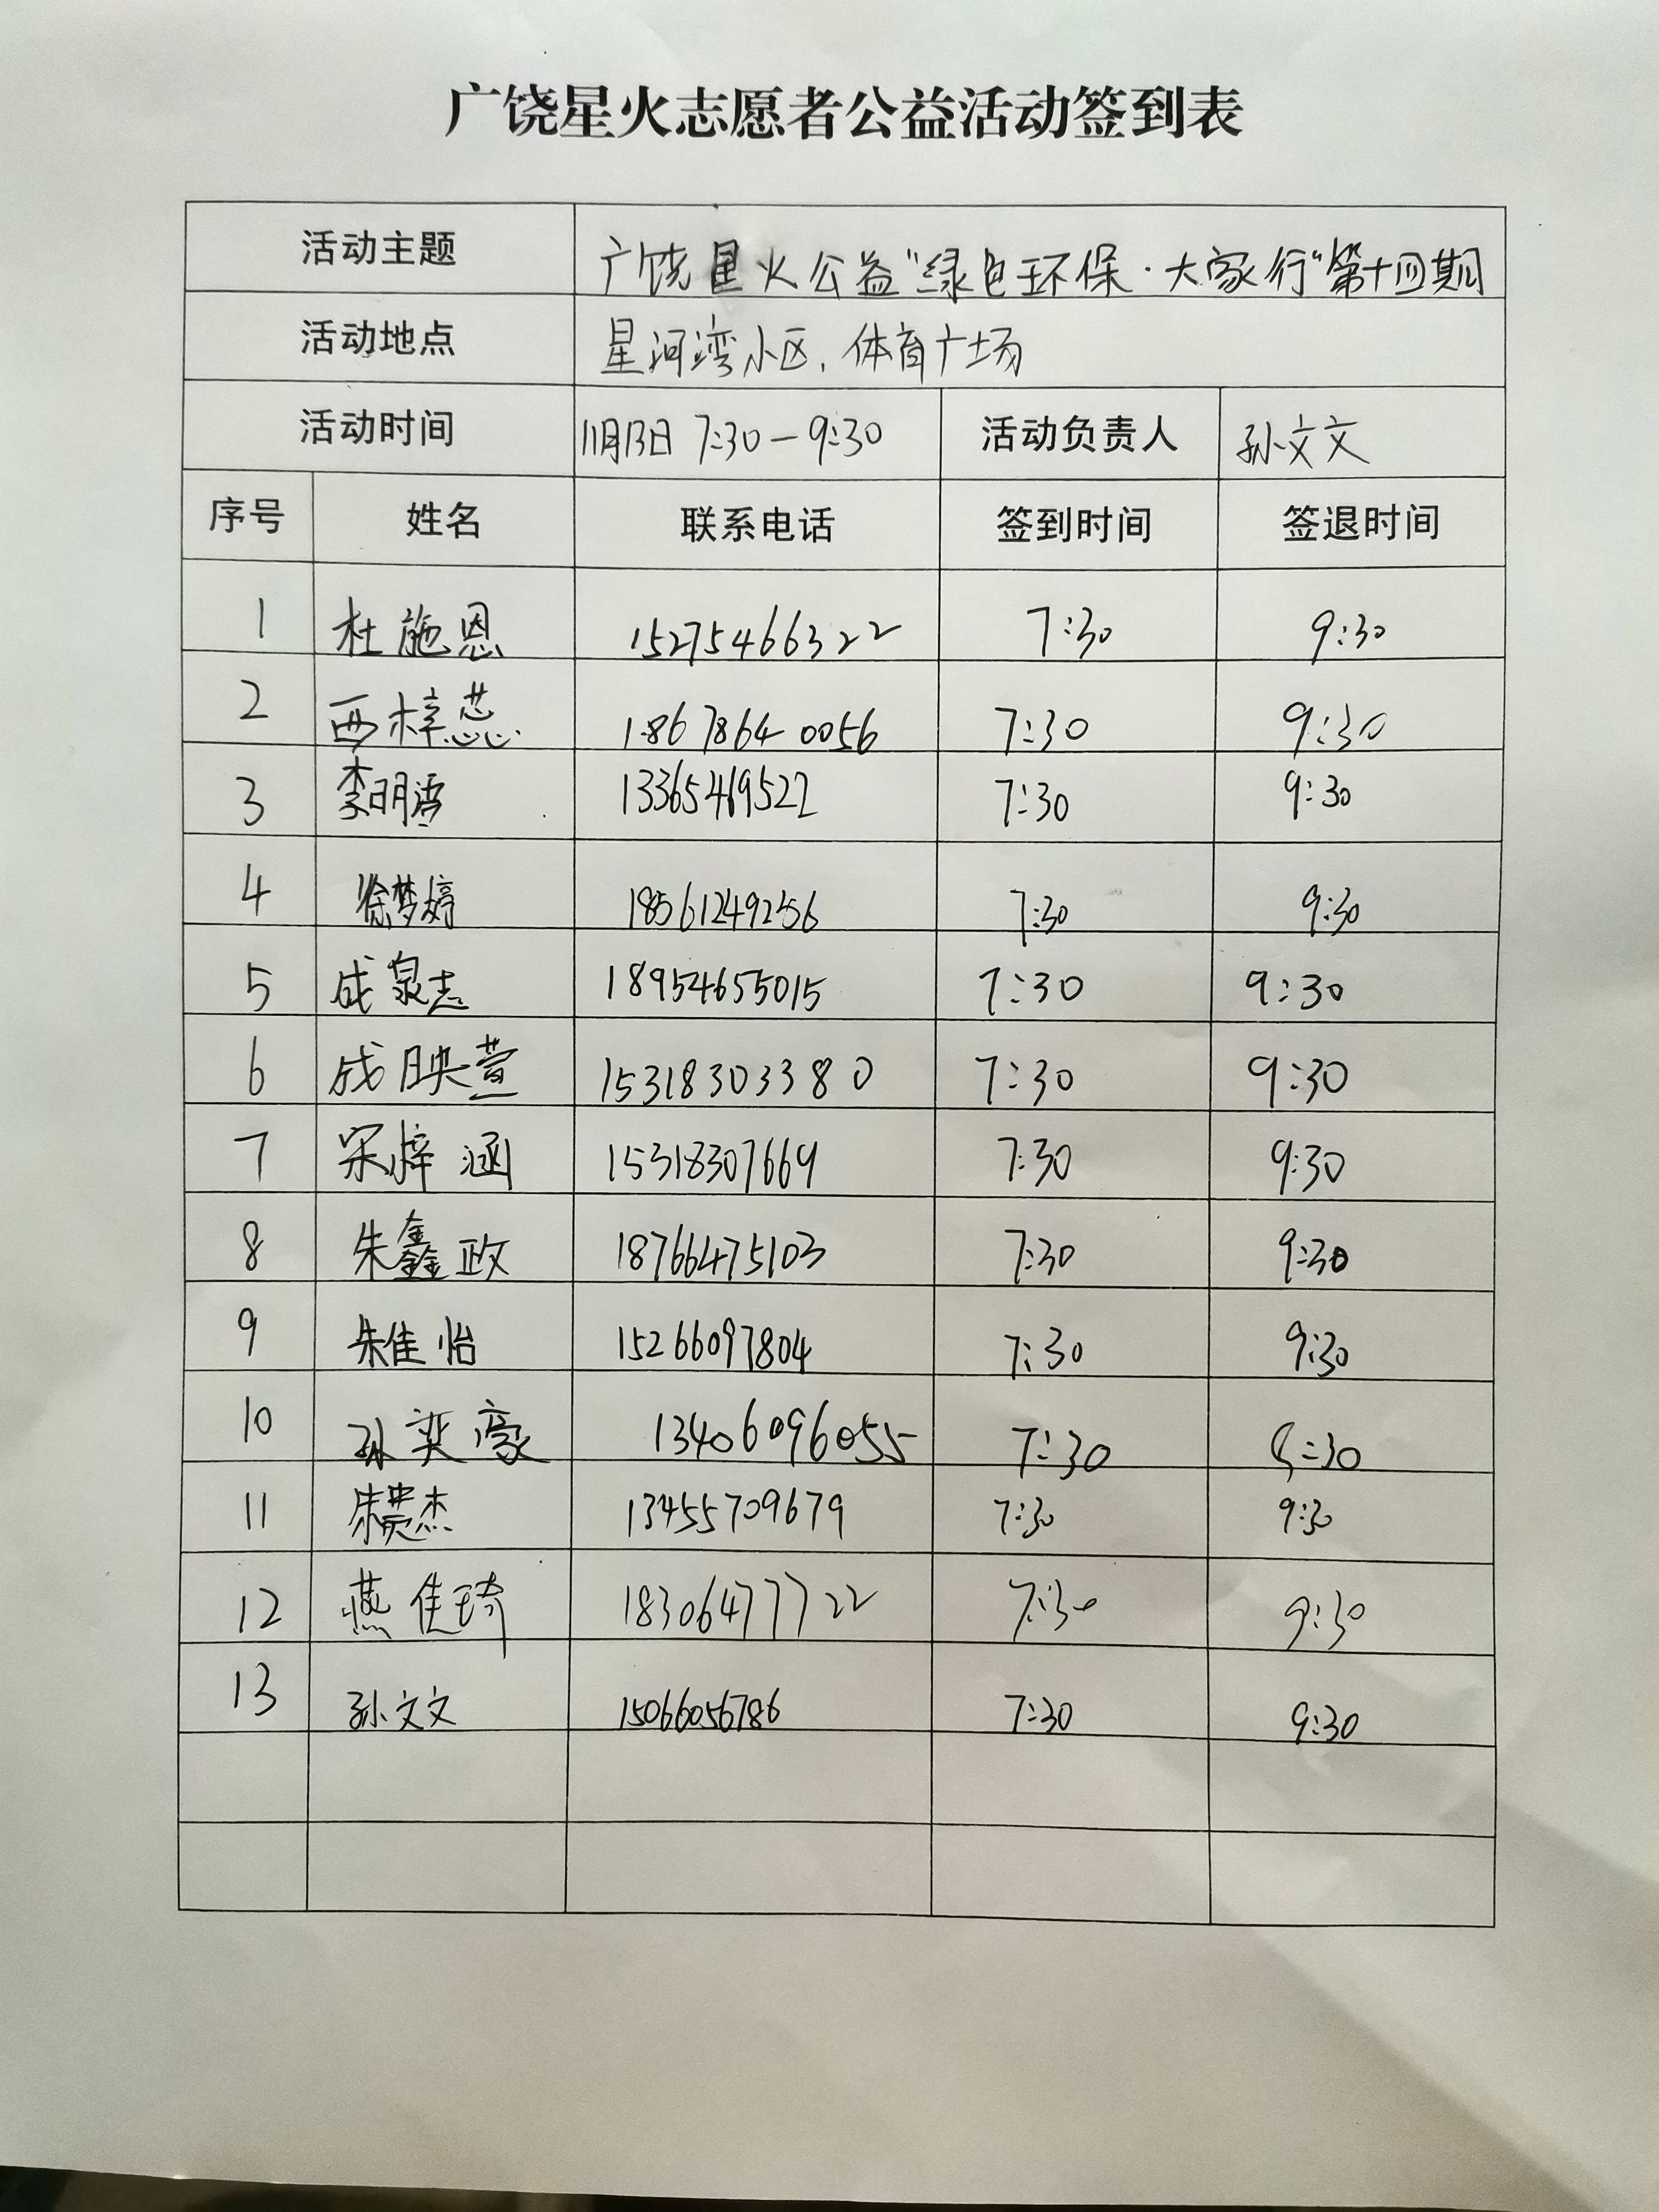 广饶星火志愿者公益活动签到表
活动主题 广饶星火公益"绿色环保·大家行"第十四期
活动地点 星河湾小区,体育广场
活动时间 11月13日 7:30-9:30 活动负责人 孙文文
序号 姓名 联系电话 签到时间 签退时间
1 杜施恩 15275466322 7:30 9:30
2 西梓蕊 18678640056 7:30 9:30
3 李明 13365469522 7:30 9:30
4 徐梦婷 18561249256 7:30 9:30
5 成泉志 18954655015 7:30 9:30
6 成映萱 15318303380 7:30 9:30
7 宋梓涵 15318307669 7:30 9:30
8 朱鑫政 18766475103 7:30 9:30
9 朱佳怡 15266097804 7:30 9:30
10 孙奕豪 13406096055 7:30 9:30
11 朱英杰 13455709679 7:30 9:30
12 燕佳琦 18306477722 7:30 9:30
13 孙文文 15066056786 7:30 9:30